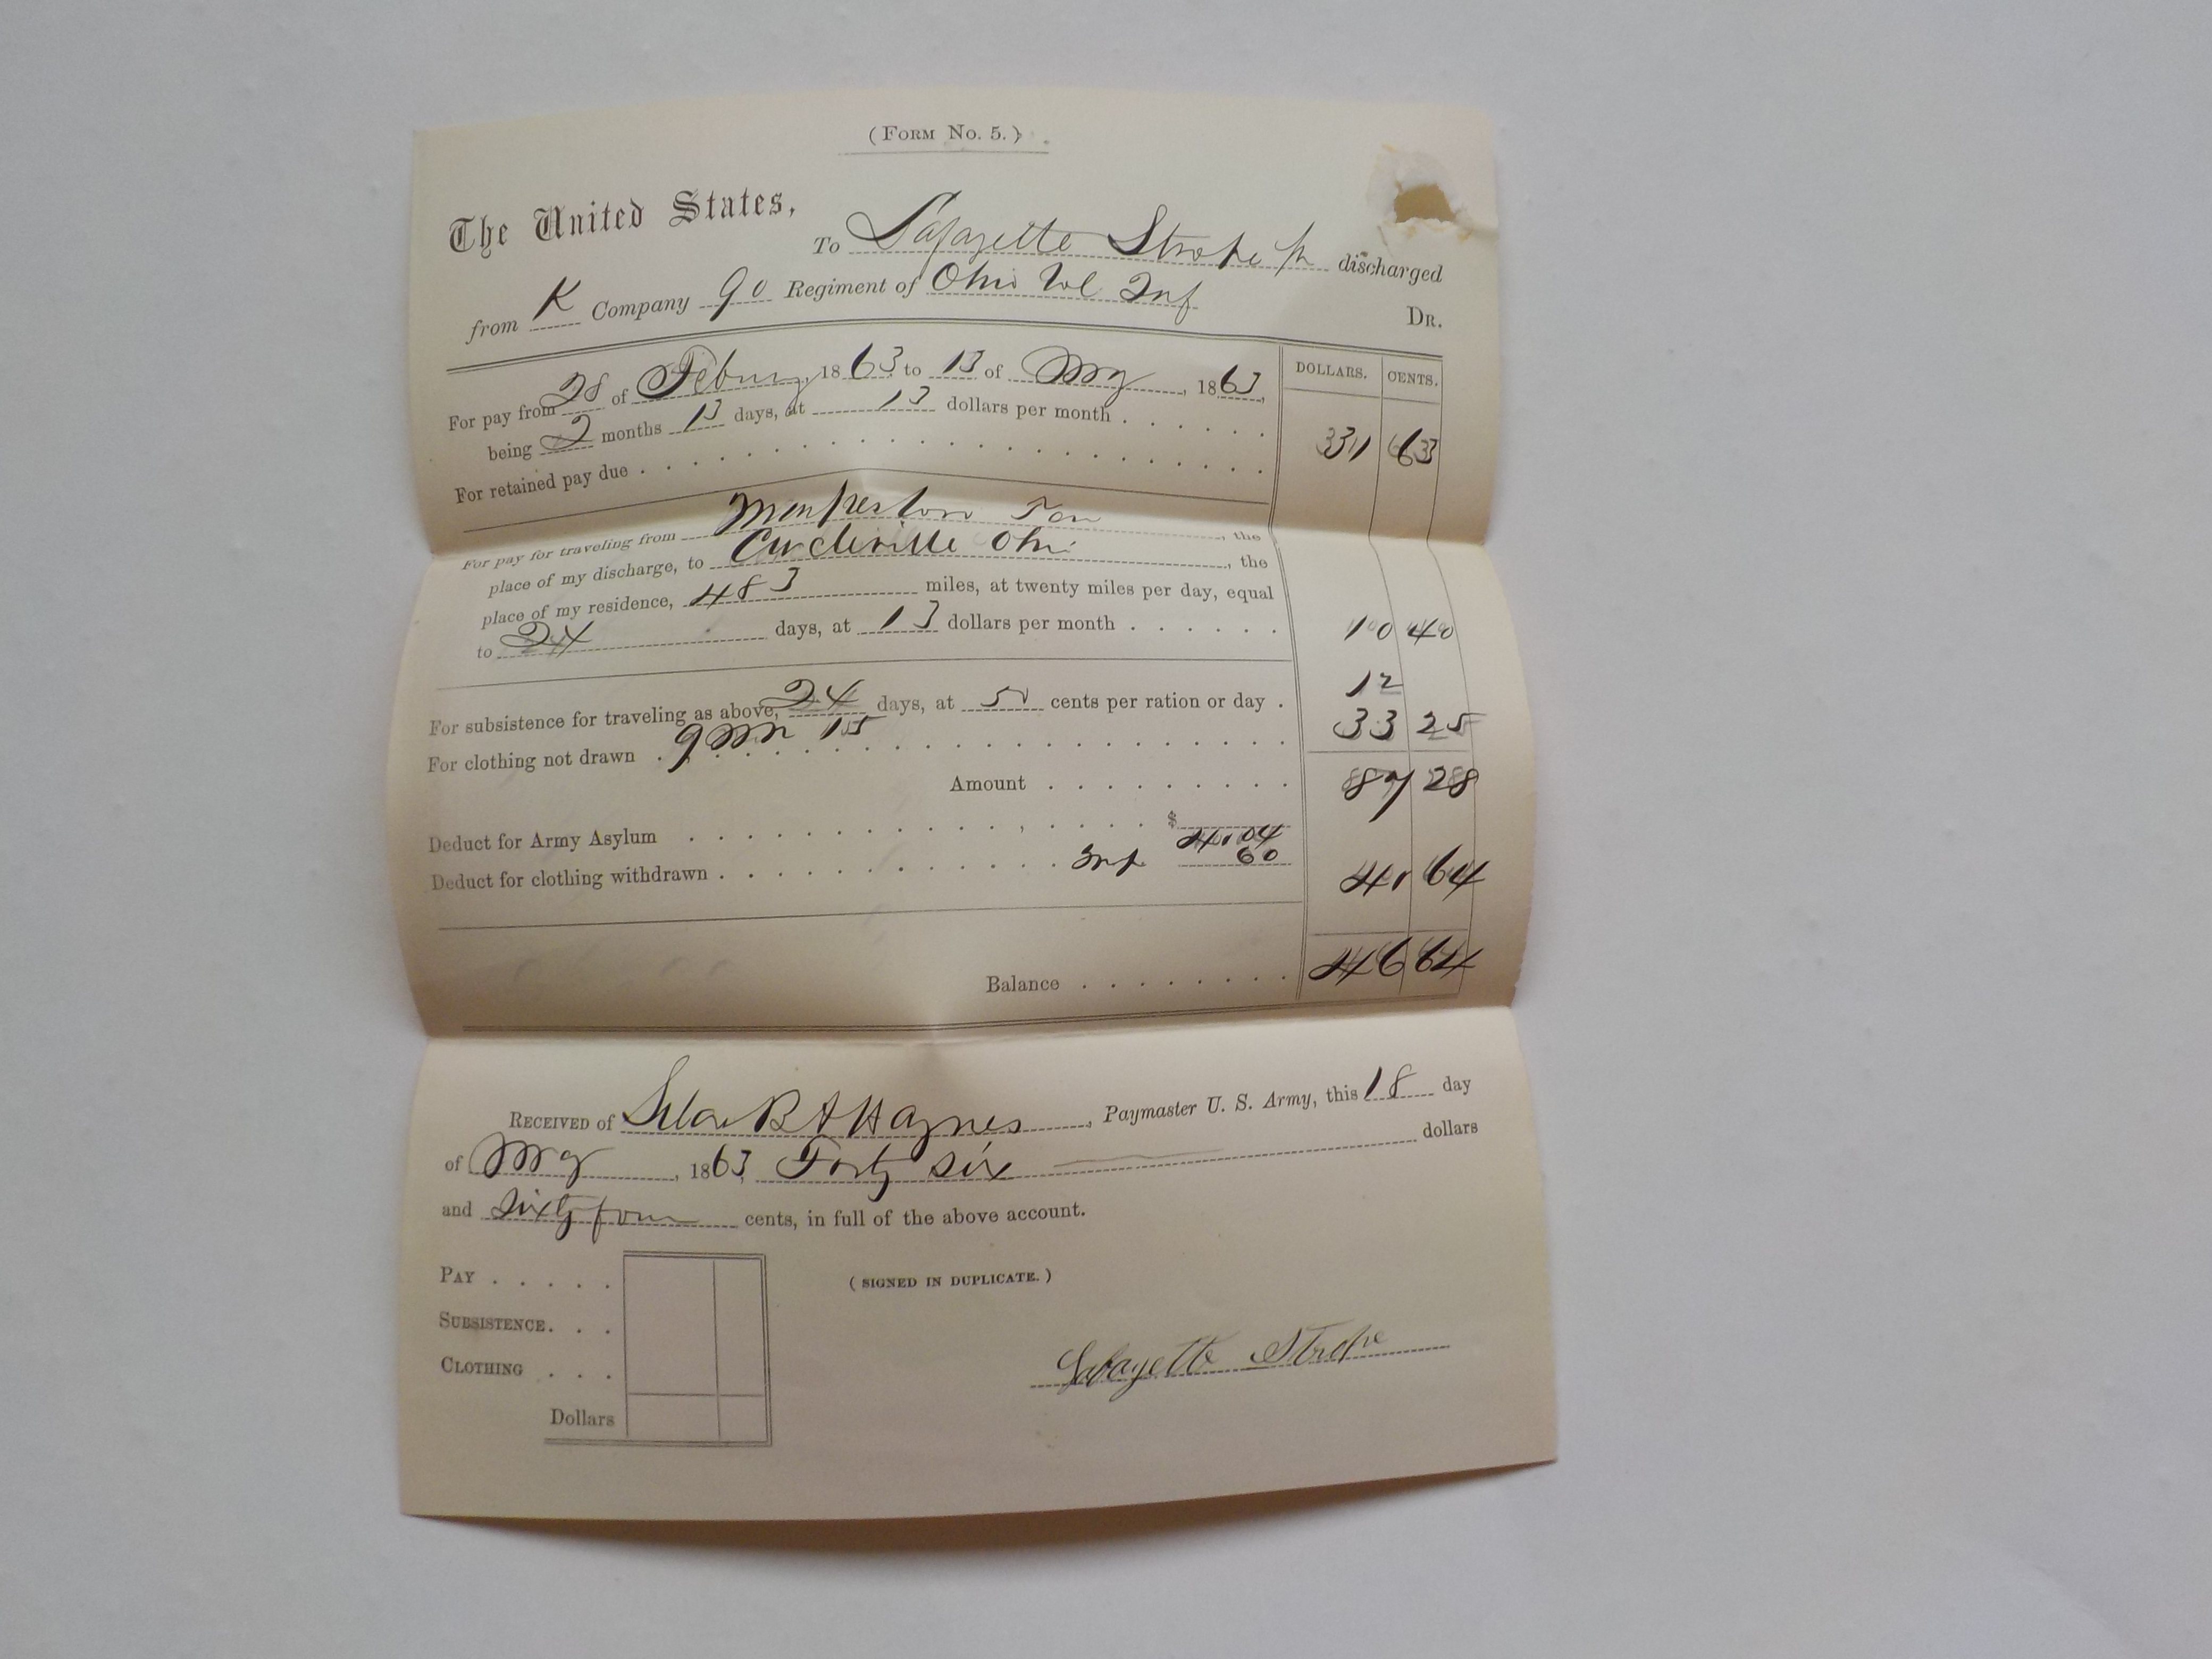 (FORM No. 5.)
The United States,
To Lafayette Strope discharged
from K Company 90 Regiment of Ohio Vol Inf
DR.
DOLLARS. CENTS.
For pay from 28 of Febury, 1863, to 13 of May, 1863,
being 2 months 13 days, at 13 dollars per month . . . . . .
31 63
For retained pay due . . . . . . . . . . . . . . . .
For pay for traveling from Ten, the
place of my discharge, to Circleville Ohi, the
place of my residence, 483 miles, at twenty miles per day, equal
to 24 days, at 13 dollars per month . . . . . . 10 40
For subsistence for traveling as above, 24 days, at 50 cents per ration or day . 12
For clothing not drawn . 9 15 . . . . . . . . . . 33 25
Amount . . . . . . . . . 87 28
Deduct for Army Asylum . . . . . . . . . . . . . $
41.04
Deduct for clothing withdrawn . . . . . . . . . . . 60 41 64
Balance . . . . . . . . 46 64
RECEIVED of B A Haynes, Paymaster U. S. Army, this 18 day
of May, 1863, Forty six dollars
and Sixty four cents, in full of the above account.
PAY . . . . .
(SIGNED IN DUPLICATE.)
SUBSISTENCE. . .
CLOTHING . . .
Lafayette Strope
Dollars